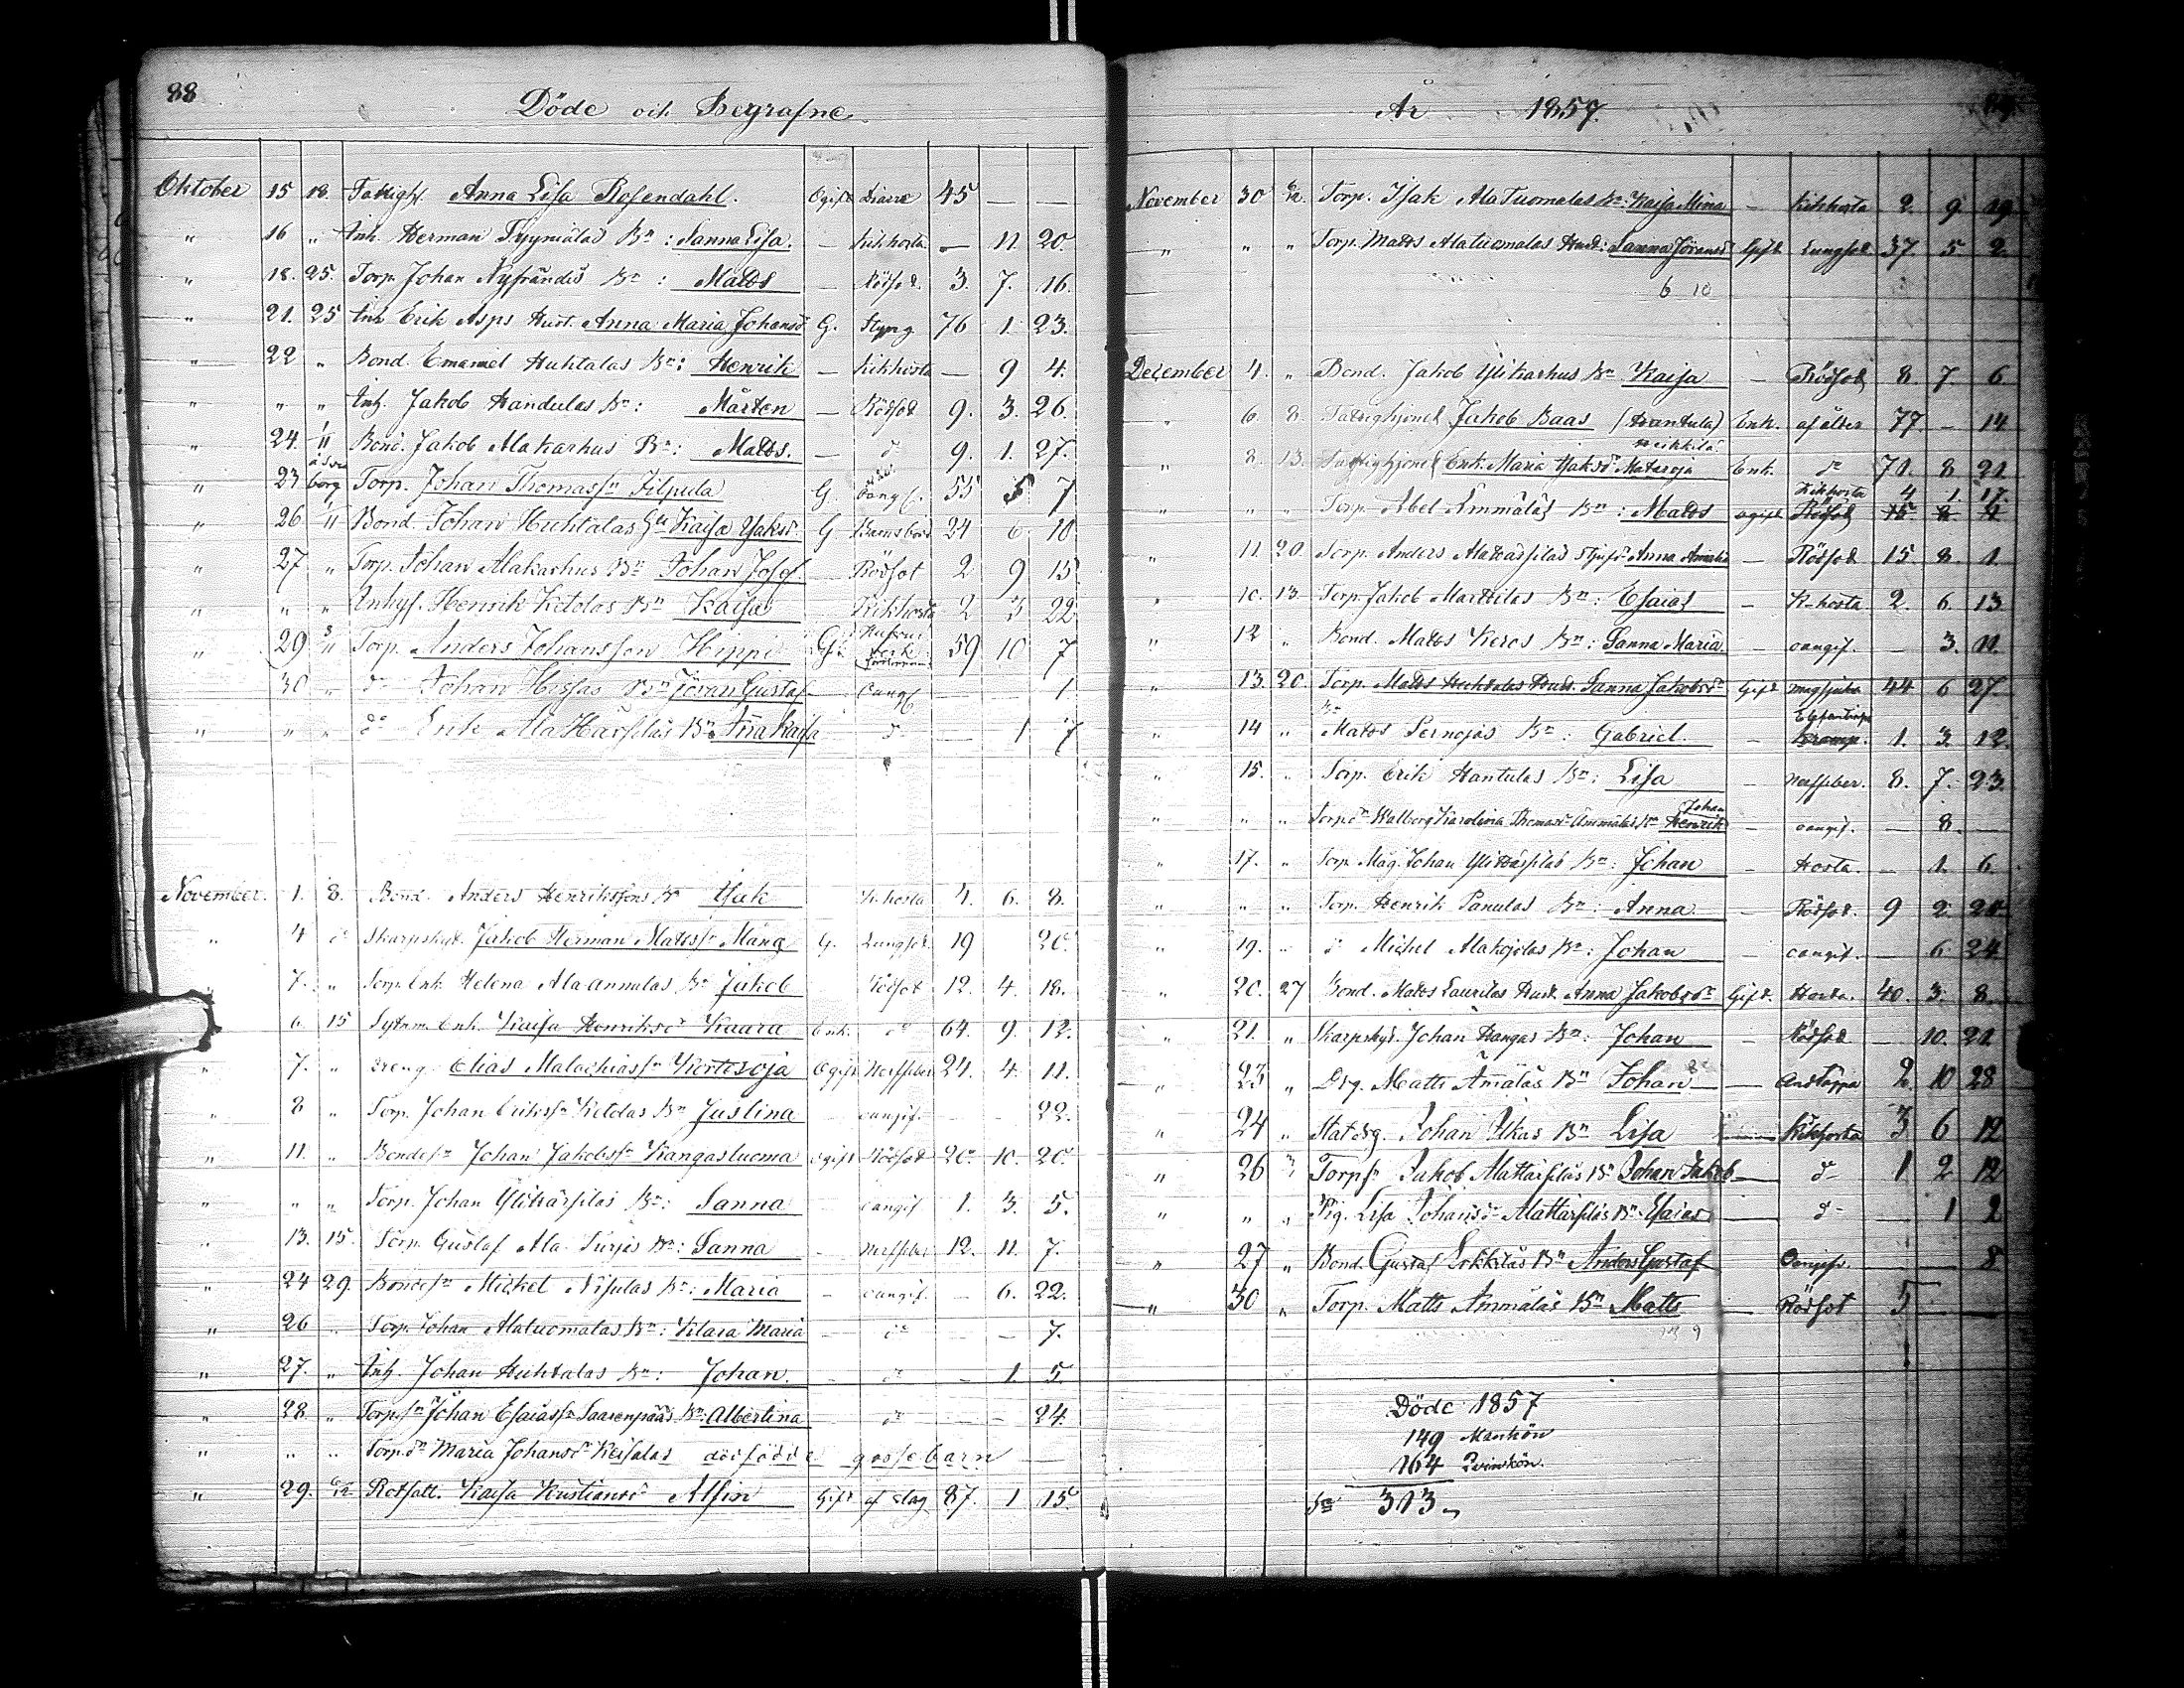 88
Döde och Begrafne
Oktober 15 18. Fattighj. Anna Lisa Rosendahl. Ogift Diarré 45 — —
" 16 " Inh. Herman Tyynäläs Bn: Sanna Lisa. — Kikhosta — 11 20.
" 18. 25. Torp. Johan Nyfrändis Bn: Matts — Rödsot 3. 7. 16.
" 21. 25 Inh Erik Asps Hust. Anna Maria Johansdr G. Styng 76 1. 23.
" 22 " Bond. Emanuel Huhtalas Bn: Henrik — Kikhosta — 9 4.
" " " Inh. Jakob Handulas Bn: Mårten — Rödsot 9. 3. 26.
" 24. 1/11 Bond. Jakob Alakarhus Bn: Matts. — do 9. 1. 27.
" 23 Torp. Johan Thomasson Filpula G. Oangf. 55 5 7
" 26 1/11 Bond. Johan Huhtalas Hu Kaisa Jaksdr G Barnsbörd 24 6 10
" 27 " Torp. Johan Alakarhus Bn Johan Josef — Rödsot 2 9 15
" " " Inhys. Henrik Ketolas Bn Kaisa Kikhosta 2 3 22
" 29 8/11 Torp. Anders Johansson Hippi G. 59 10 7
" 30 " do Johan Hissas Bn Jöran Gustaf — Oangf — — 1
" " " do Erik AlaHärsiläs Bn Anna Kaisa do — 1 7
November. 1. 8. Bond. Anders Henrikssons Bn Isak K.hosta 4. 6. 8.
" 4 do Skarpskyt. Jakob Herman Mattsson Mäng G. Lungsot. 19 20.
7. " Torp. Enk. Helena Ala-annalas Bn Jakob Rödsot 12. 4. 18.
6. 15 Sytnm. Enk. Kaisa Henriksdr Kaara Enk. do 64. 9. 12.
" 7. " Dreng. Elias Malachiasson Kortesoja Ogift Nerffeber 24. 4. 11.
" 8 " Torp. Johan Eriksson Ketolas Bn Justina oangif. — — 22.
" 11. " Bondesn Johan Jakobsson Kangasluoma ogift Rödsot 20. 10. 20.
" " " Torp. Johan Ylihärsiläs Bn: Sanna — oangif 1. 3. 5.
" 13. 15. Torp. Gustaf Ala-Turjas Bn: Sanna — Nerffeber 12. 11. 7.
" 24 29. Bondesn Mickel Nisulas Bn: Maria — oangif. — 6. 22.
" 26 " Torp. Johan Alatuomalas Bn: Klara Maria — do — 7.
" 27. " Inh. Johan Huhtalas Bn: Johan. — do — 1 5.
" 28 " Torpsn Johan Esaiasson Saarenpääs Bn: Albertina do — 24.
" " " Torpdr Maria Johansdr Keisalas dödfödde gossebarn —
" 29. 6/12 Rotfatt. Kaisa Kristiansdr Alfin Gift af slag 87. 1 15.
År 1857. 89.
November 30 6/12. Torp. Isak AlaTuomalas Bn: Kaisa Mina — Kikhosta 2. 9. 19.
" " " Torp. Matts Alatuomalas Hust: Sanna Jöransdr Gift Lungsot. 37. 5. 2.
6 10
December 4. " Bond. Jakob Ylikarhus Bn Kaisa — Rödsot 8. 7. 6.
" 6. 8. Fattighjonet Jakob Baas (Hantula) Enk. af ålder 77. — 14
Heikkilä
" 8. 13. Fattighjonet Enk. Maria Jaksdr Mataroja Enk. do 71. 8 21
Kikhosta 4 1. 17.
" " " Torp. Abel Ämmäläs Bn: Matts ogift Rödsot 15. 8. 4
" 11. 20. Torp. Anders Alahärsiläs Styfdr Anna Amalia — Rödsot 15. 8. 1
" 10. 13 Torp. Jakob Marttilas Bn: Esaias — K-hosta. 2. 6. 13
" 12 " Bond. Matts Keros Bn: Sanna Maria. — oangif. — 3. 11.
" 13. 20 Torp. Matts Huhtalas Hust. Sanna Jakobsdr Gift magsjuka 44 6 27.
" 14 " Matts Pernojas Bn: Gabriel. — Kramp. 1. 3. 12.
" 15. " Torp. Erik Hantulas Bn: Lisa — Nerffeber. 8. 7. 23.
Johan
" " " Torpdr Walborg Karolina Thomasdr Ämmäläs Bn Henrik — oangif. — 8. —
" 17. " Torp. Måg. Johan Ylihärsiläs Bn: Johan — Hosta. — 1. 6.
" " " Torp. Henrik Panulas Bn: Anna — Rödsot. 9 2 20
" 19. " do Mickel Alakojolas Bn: Johan — oangif. — 6. 24
" 20. 27 Bond. Matts Laurilas Hust. Anna Jakobsdr Gift. Hosta. 40. 3. 8.
" 21. " Skarpskyt. Johan Hangas Bn: Johan — Rödsot — 10. 21
" 23 " Drg. Matts Ämäläs Bn Johan — Andtäppa 2. 10 28
" 24 " Statdrg. Johan Ilkas Bn Lisa — Kikhosta 3 6 12
" 26 Torpsn Jakob Alahärsiläs Bn Johan Jakob — do 1 2 12
" " " Pig. Lisa Johansdr Alahärsiläs Bn Esaias — do — 1 2
" 27 " Bond. Gustaf Erkkiläs Bn Anders Gustaf — Oangif. — — 8
" 30 " Torp. Matts Ämmäläs Bn Matts — Rödsot 5 — —
Döde 1857
149 Mankön
164 Qvinkön.
Sa 313